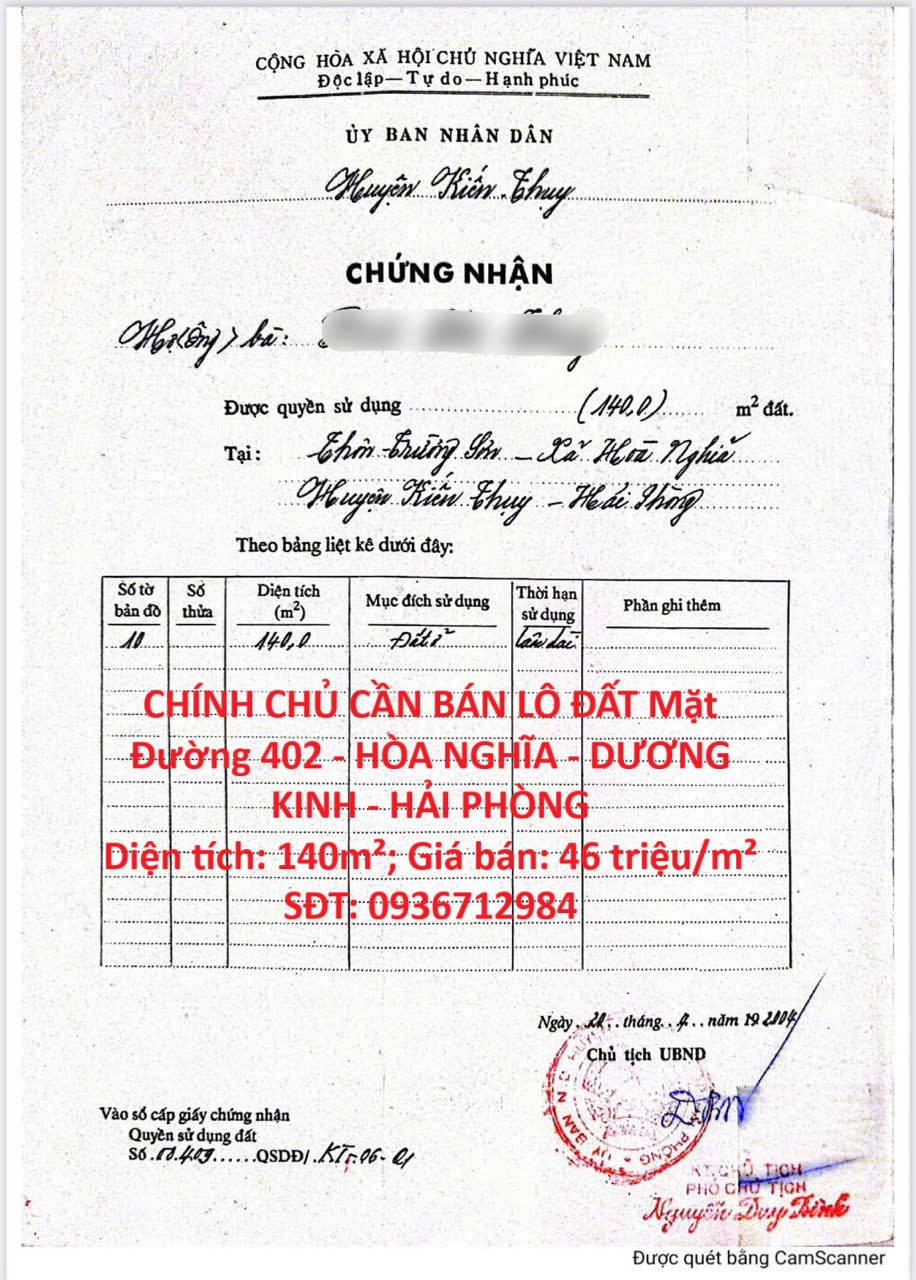 CỘNG HÒA XÃ HỘI CHỦ NGHĨA VIỆT NAM
Độc lập — Tự do — Hạnh phúc
ỦY BAN NHÂN DÂN
Huyện Kiến Thụy
CHỨNG NHẬN
Hộ (ông) bà:
Được quyền sử dụng (140,0) m² đất.
Tại: Thôn Trường Sơn - Xã Hoà Nghĩa
Huyện Kiến Thụy - Hải Phòng
Theo bảng liệt kê dưới đây:
Số tờ bản đồ | Số thửa | Diện tích (m²) | Mục đích sử dụng | Thời hạn sử dụng | Phần ghi thêm
10 | | 140,0 | Đất ở | Lâu dài |
CHÍNH CHỦ CẦN BÁN LÔ ĐẤT Mặt
Đường 402 - HÒA NGHĨA - DƯƠNG
KINH - HẢI PHÒNG
Diện tích: 140m²; Giá bán: 46 triệu/m²
SĐT: 0936712984
Ngày tháng năm 2004
Chủ tịch UBND
Vào sổ cấp giấy chứng nhận
Quyền sử dụng đất
Số 00.409 QSDĐ/ KT-06-01
KT. CHỦ TỊCH
PHÓ CHỦ TỊCH
Nguyễn Duy Bình
Được quét bằng CamScanner